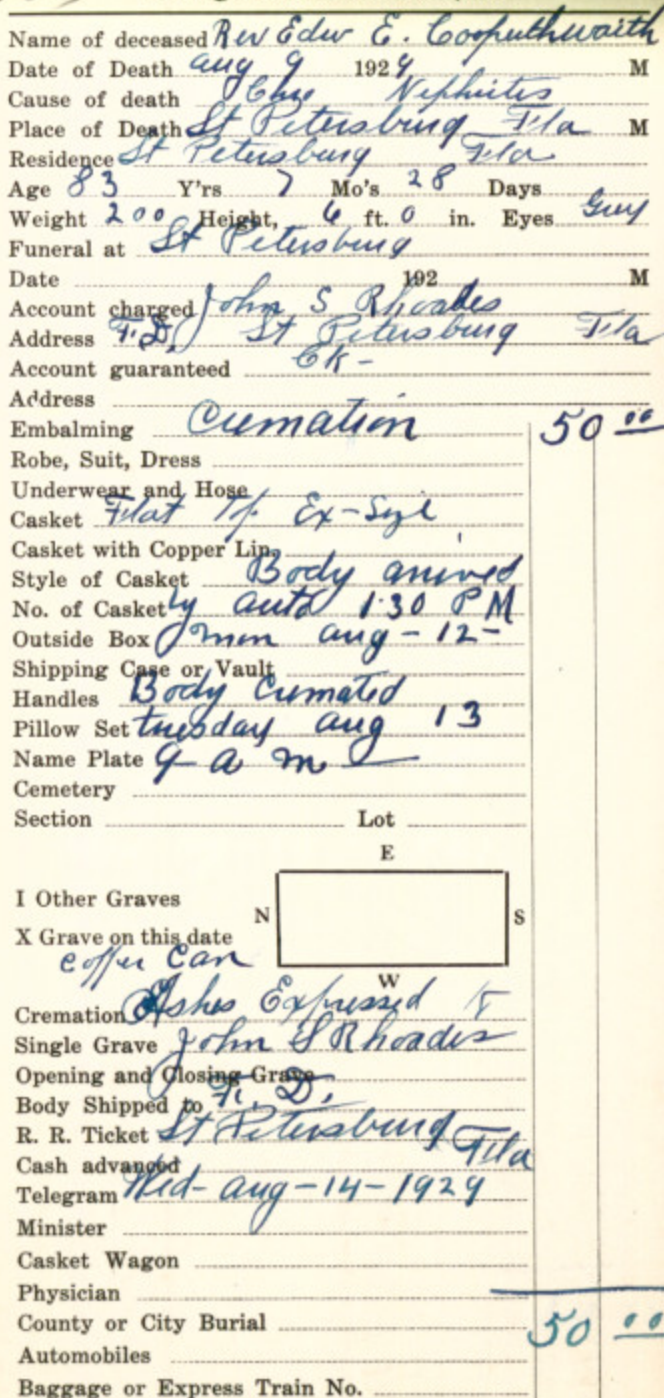 Name of deceased Rev Edw E. Cooputhwaith
Date of Death Aug 9 1929 M
Cause of death Chro Nephrites
Place of Death St Petersburg Fla M
Residence St Petersburg Fla
Age 83 Y'rs 7 Mo's 28 Days
Weight 200 Height, 6 ft. 0 in. Eyes Grey
Funeral at St Petersburg
Date 192 M
Account charged John S Rhoades
Address F.D, St Petersburg Fla
Account guaranteed Ok-
Address
Embalming Cremation 50 00
Robe, Suit, Dress
Underwear and Hose
Casket Flat Top Ex-Size
Casket with Copper Lin.
Style of Casket Body arrived
No. of Casket by auto 1 30 PM
Outside Box mon Aug - 12 -
Shipping Case or Vault
Handles Body Cremated
Pillow Set tuesday Aug 13
Name Plate 9 a m
Cemetery
Section Lot
E
I Other Graves
N S
X Grave on this date
coffee Can
W
Cremation Ashes Expressed to
Single Grave John S Rhoades
Opening and Closing Grave
Body Shipped to F. D.
R. R. Ticket St Petersburg Fla
Cash advanced
Telegram Wed- Aug - 14 - 1929
Minister
Casket Wagon
Physician
County or City Burial 50 00
Automobiles
Baggage or Express Train No.